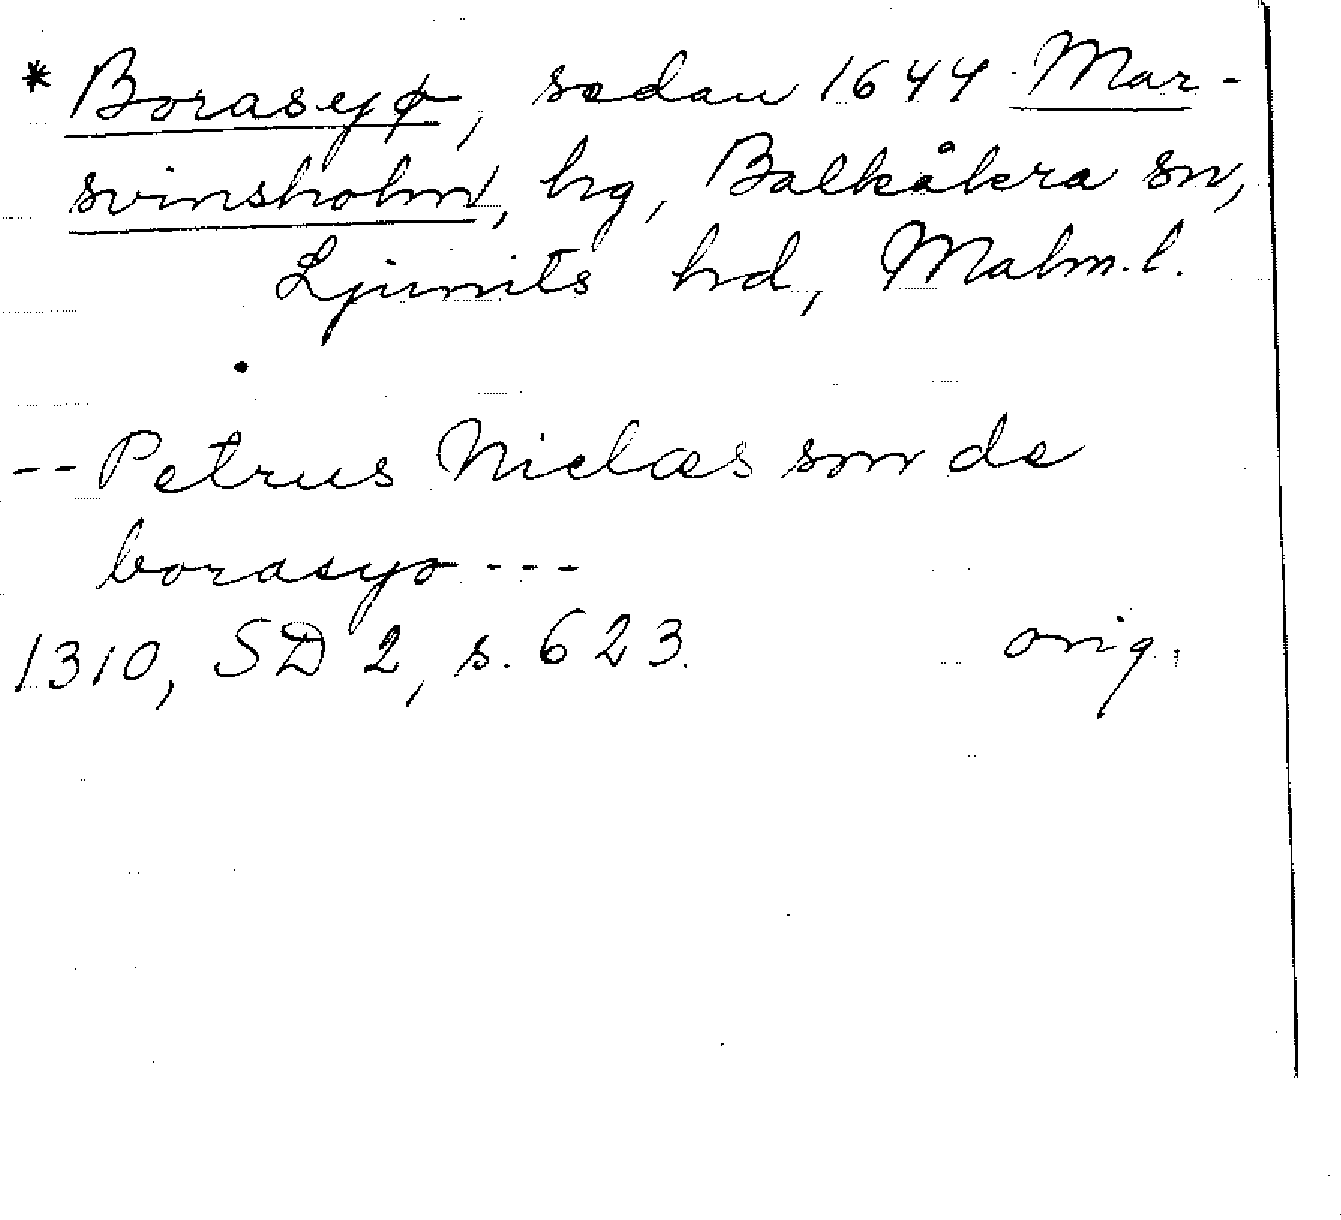 * Borasyø, sedan 1644 Mar-
svinsholm, hg, Balkåkra sn,
Ljunits hd, Malm.l.
-- Petrus Niclæs son de
borasyo ---
1310, SD 2, s. 623. orig.